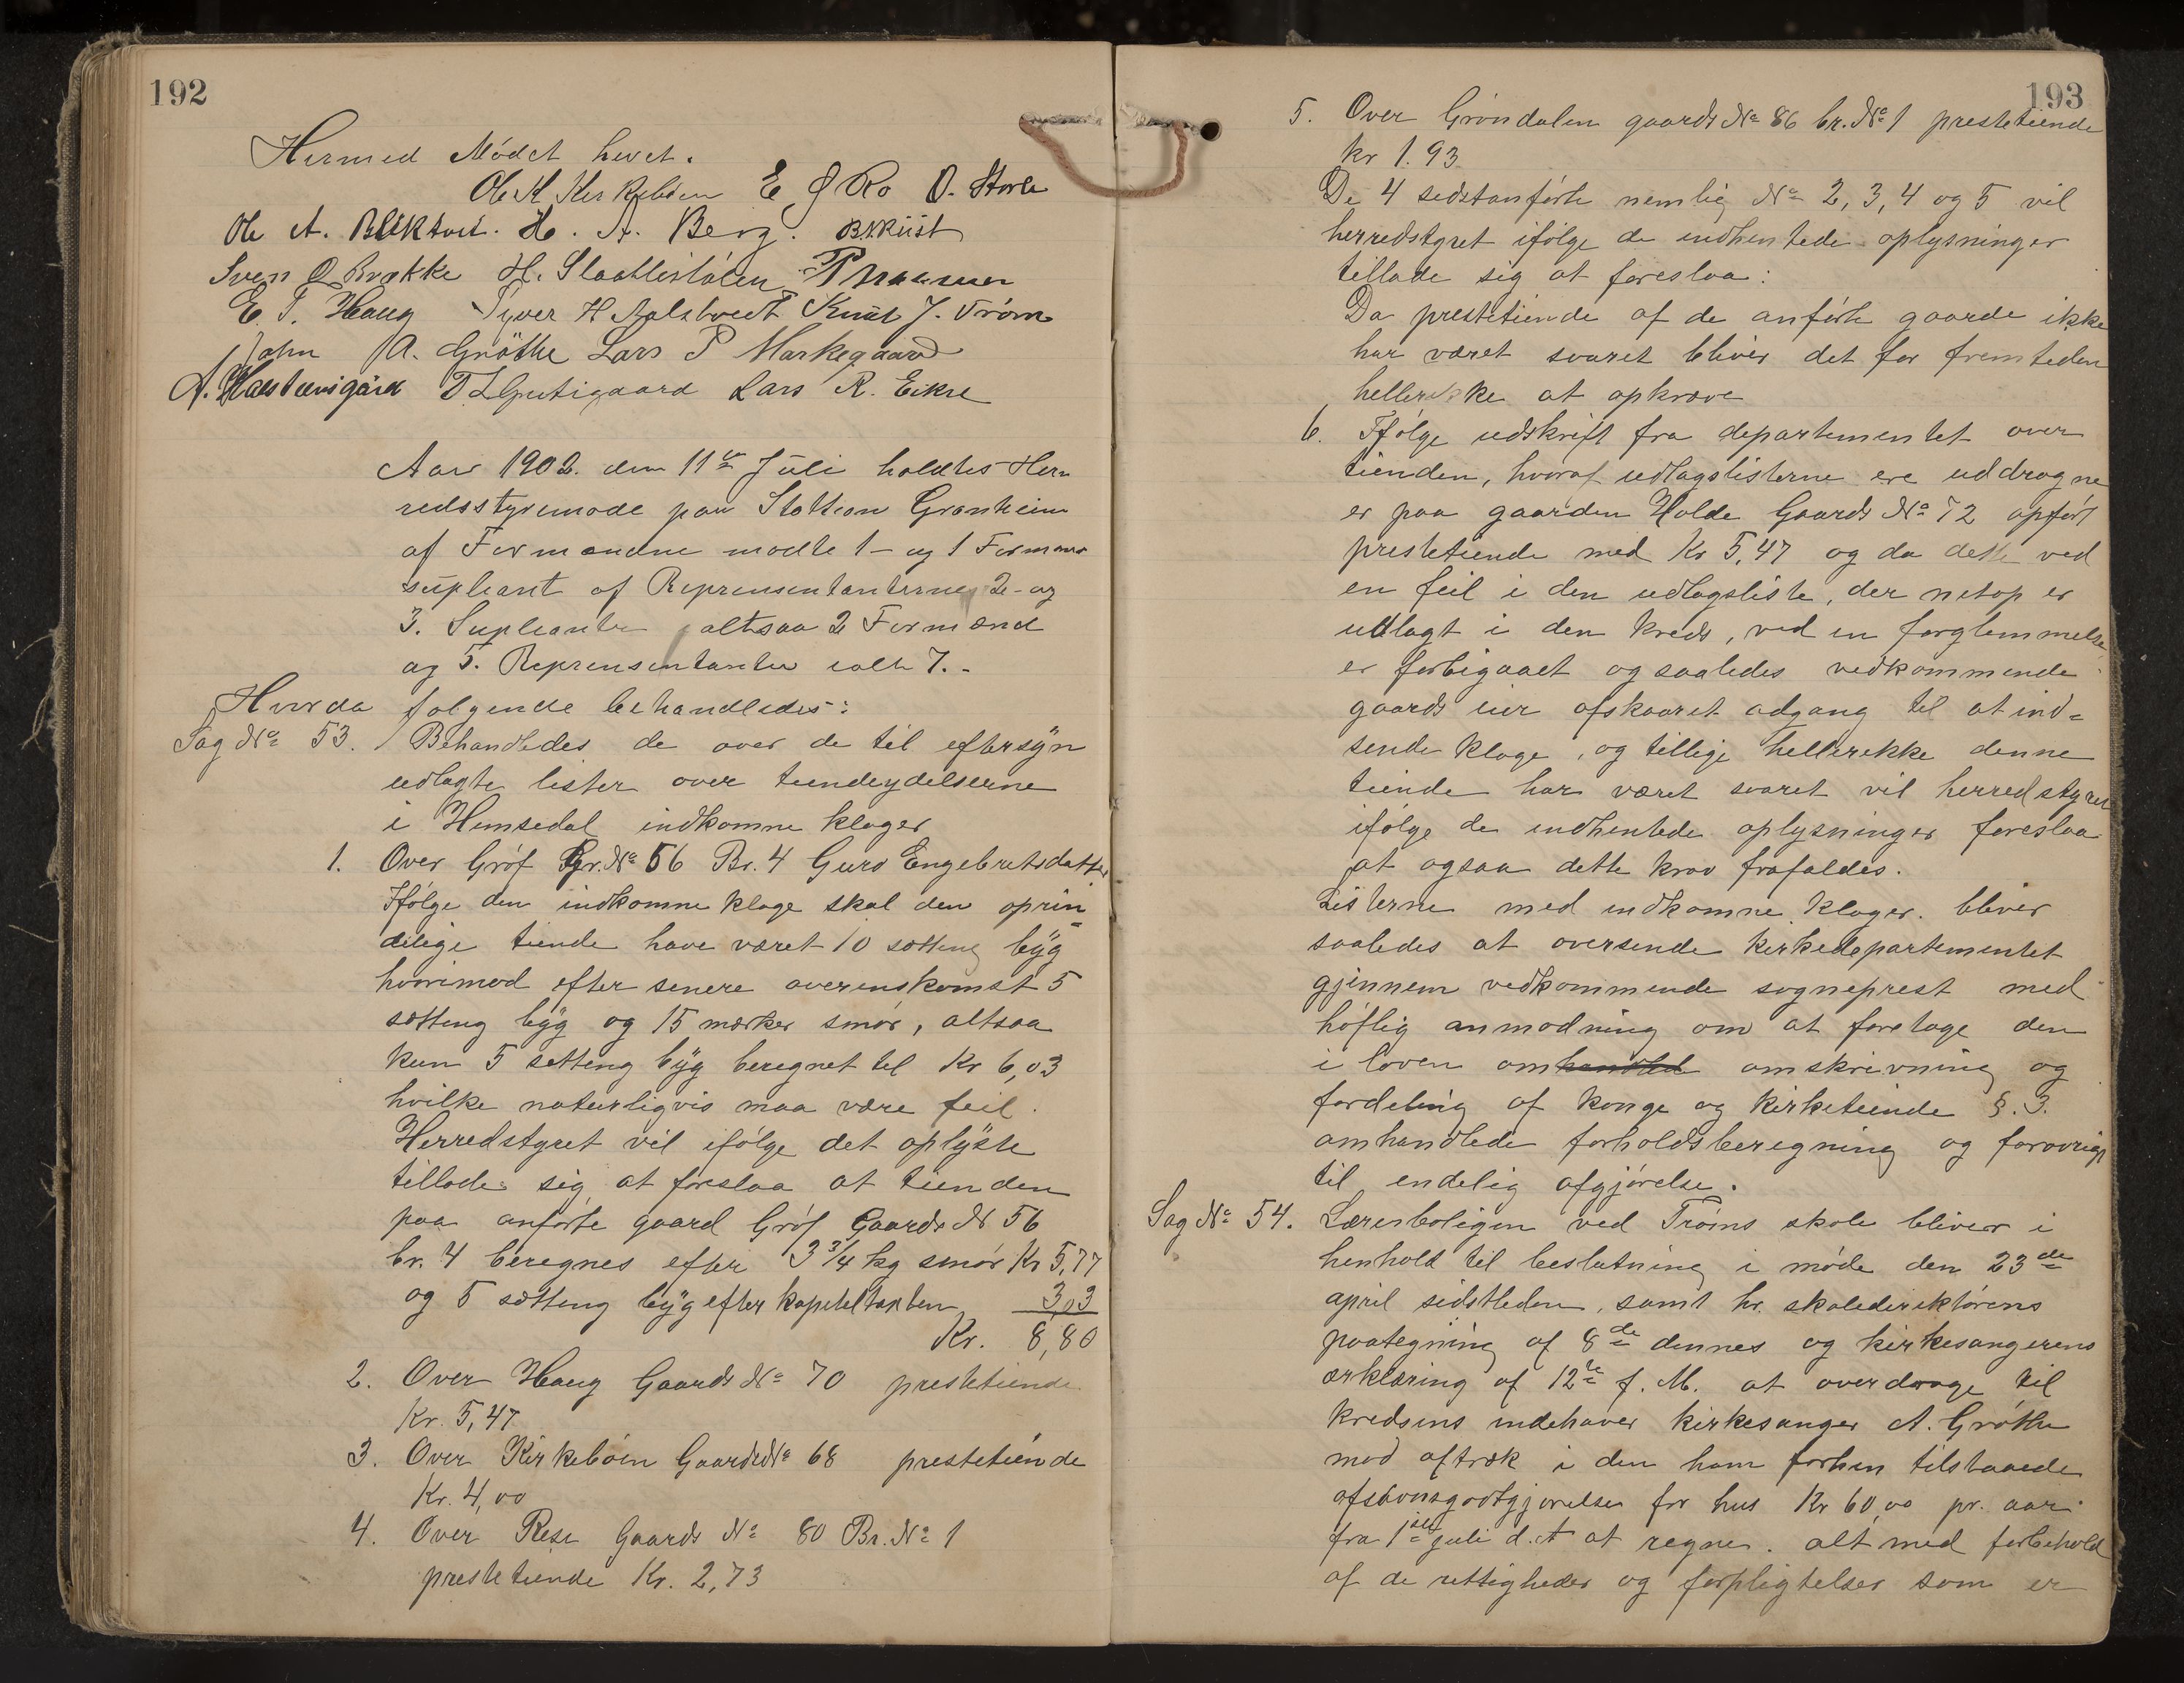 192
Hermed Mødet hevet.
Ole K Kirkebøen E O Ro O. Storle
Ole A. . H. A. Berg.
Sven O Brække H.
E. T. Haug H Aalstveit Knut J. Trøim
John A. Grøthe Lars P Markegaard
A. Lars R. Eikre
Aar 1902. den 11te Juli holdtes Her
redsstyremøde paa Station Granheim
af Formændne mødte 1 – og 1 Formans
supleant af Reprensentanterne 2 – og
3. Supleanter altsaa 2 Formænd
og 5. Reprensentanter ialt 7. –
Hvorda følgende behandledes:
Sag No 53. Behandledes de over de til eftersyn
udlagte lister over tiendeydelserne
i Hemsedal indkomne klager
1. Over Grøf Gr. No 56 Br. 4 Guro Engebretsdatter
Ifølge den indkomne klage skal den oprin
delige tiende have været 10 sætting byg
hvorimod efter senere overenskomst 5
sætting byg og 15 mærker smør, altsaa
kun 5 setting byg beregnet til Kr 6,03
hvilke naturligvis maa være feil.
Herredstyret vil ifølge det oplyste
tillade sig at foreslaa at tienden
paa anførte gaard Grøf Gaards N 56
br. 4 beregnes efter 3 3/4 kg smør Kr 5,77
og 5 sætting byg efter kapiteltaxten 3,03
Kr. 8,80
2. Over Haug Gaards No 70 prestetiende
Kr. 5,47
3. Over Kirkebøen Gaards No 68 prestetiende
Kr. 4,00
4. Over Gaards No 80 Br. No 1
prestetiende Kr. 2,73
193
5. Over Grøndalen gaards No 86 br. No 1 prestetiende
kr 1.93
De 4 sidstanførte nemlig No 2, 3, 4 og 5 vil
herredstyret ifølge de indhentede oplysninger
tillade sig at foreslaa:
Da prestetiende af de anførte gaarde ikke
har været svaret bliver det for fremtiden
heller ikke at opkræve
6. Ifølge udskrift fra departementet over
tienden, hvoraf udlagslisterne ere uddragne
er paa gaarden Holde Gaards No 72 opført
prestetiende med Kr 5,47 og da dette ved
en feil i den udlagsliste, der netop er
udlagt i den kreds, ved en forglemmelse
er forbigaaet og saaledes vedkommende
gaards eier afskaaret adgang til at ind=
sende klage, og tillige heller ikke denne
tiende har været svaret vil herredstyret
ifølge de indhentede oplysninger foreslaa
at ogsaa dette krav frafaldes.
Listerne med indkomne klager bliver
saaledes at oversende kirkedepartementet
gjennem vedkommende sogneprest med
høflig anmodning om at foretage den
i loven omhandled omskrivning og
fordeling af konge og kirketiende §. 3.
omhandlede forholdsberegning og forøvrigt
til endelig afgjørelse.
Sag No 54. Lærerboligen ved Trøims skole bliver i
henhold til beslutning i møde den 23de
april sidstleden, samt hr. skoledirektørens
paategning af 8de dennes og kirkesangerens
erklæring af 12te f. M. at overdrage til
kredsens indehaver kirkesanger A. Grøthe
mod aftræk i den ham forhen tilstaaede
afsavnsgodtgjørelse for hus Kr 60,00 pr. aar
fra 1ste juli d. A at regne. alt med forbehold
af de rettigheder og forpligtelser som er